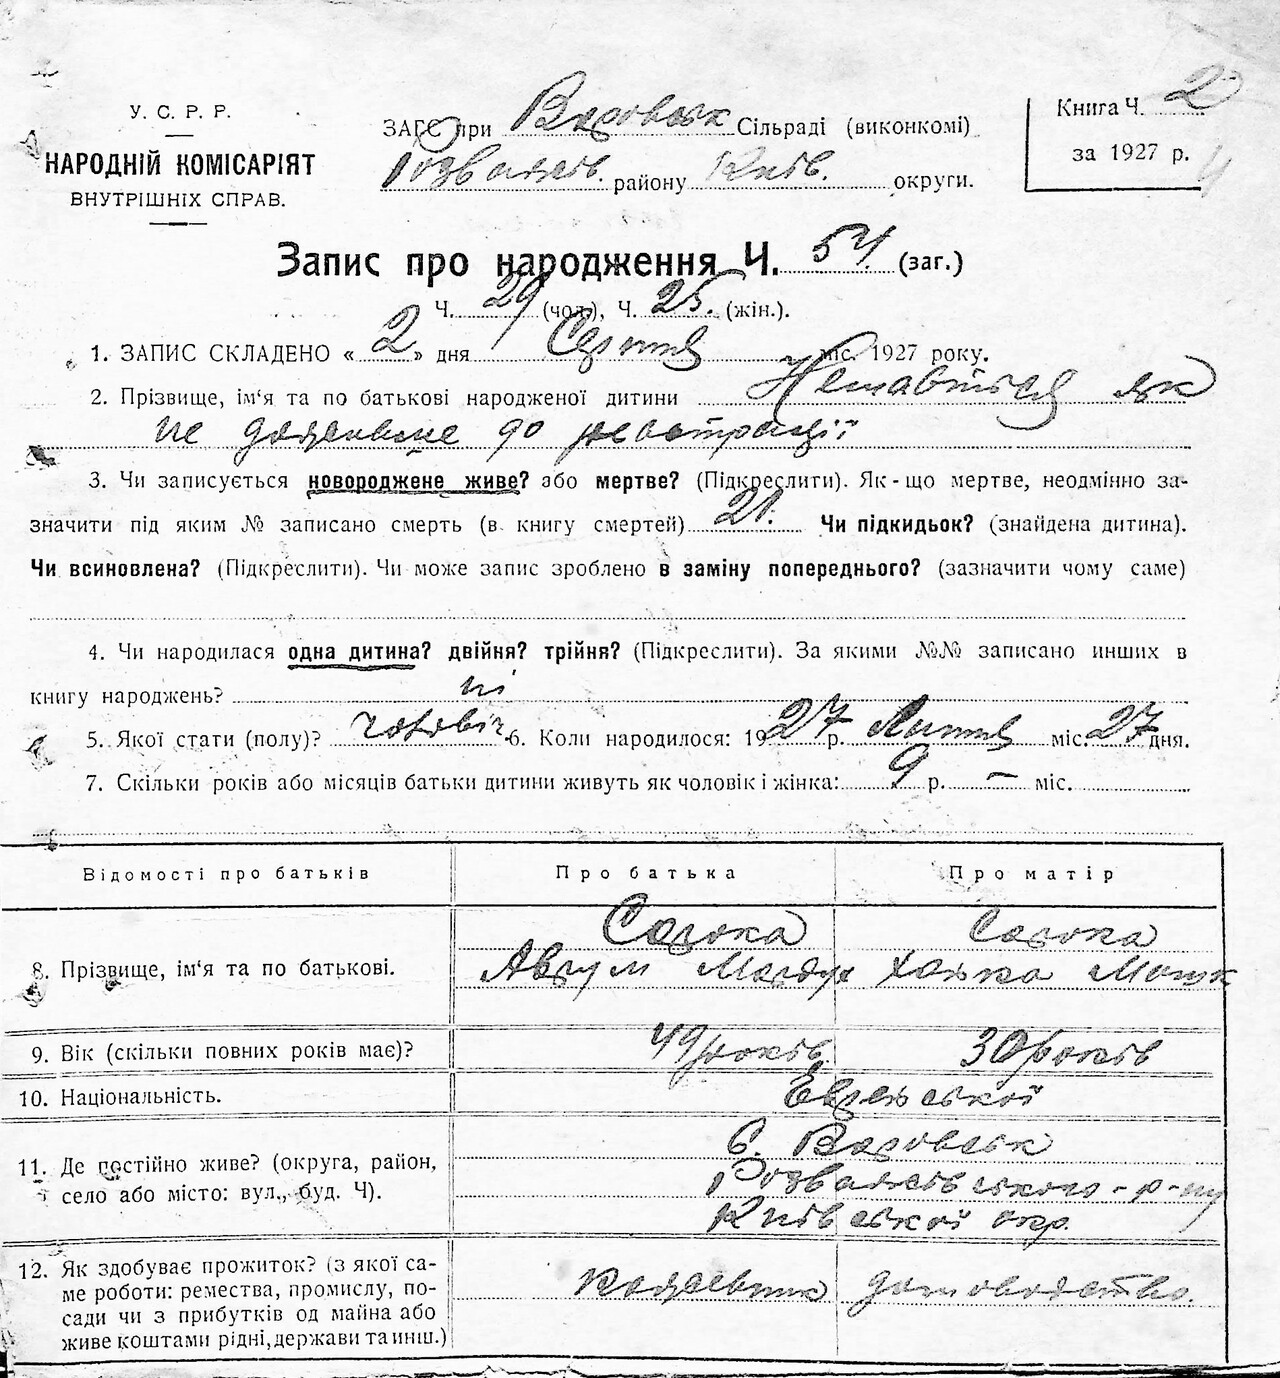 У. С. Р. Р.
НАРОДНІЙ КОМІСАРІЯТ
ВНУТРІШНІХ СПРАВ.
ЗАГС при Варовськ Сільраді (виконкомі)
Розважів. району Київ. округи.
Книга Ч. 2
за 1927 р.
Запис про народження Ч. 54. (заг.)
Ч. 29 (чол.), Ч. 25. (жін.).
1. ЗАПИС СКЛАДЕНО « 2 » дня Серпня міс. 1927 року.
2. Прізвище, ім'я та по батькові народженої дитини як
не до реєстрації
3. Чи записується новороджене живе? або мертве? (Підкреслити). Як-що мертве, неодмінно за-
значити під яким № записано смерть (в книгу смертей) 21. Чи підкидьок? (знайдена дитина).
Чи всиновлена? (Підкреслити). Чи може запис зроблено в заміну попереднього? (зазначити чому саме)
4. Чи народилася одна дитина? двійня? трійня? (Підкреслити). За якими №№ записано инших в
книгу народжень? ні
5. Якої стати (полу)? чоловіч. 6. Коли народилося: 1927 р. Липня міс. 27 дня.
7. Скільки років або місяців батьки дитини живуть як чоловік і жінка: 9 р. — міс.
Відомості про батьків Про батька Про матір
Сорока Сорока
8. Прізвище, ім'я та по батькові. Аврум Мордух Хайка Мошк
9. Вік (скільки повних років має)? 49 років 30 років
10. Національність. Еврейської
11. Де постійно живе? (округа, район,
село або місто: вул., буд. Ч).
С. Варовськ
Розважівського р-ну
Київської окр.
12. Як здобуває прожиток? (з якої са-
ме роботи: ремества, промислу, по-
сади чи з прибутків од майна або
живе коштами рідні, держави та инш.)
домоводство.